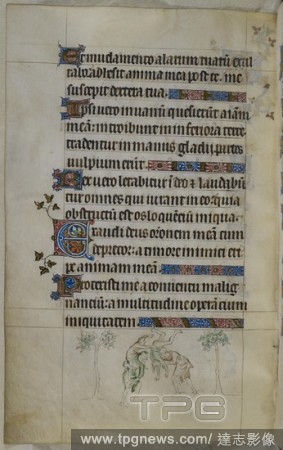 Et in velamento alarum tuarum exul
tabo adhesit anima mea post te. me
suscepit dextera tua.
Ipsi vero in vanum quesierunt aiam
meā: introibunt in inferiora terre
tradentur in manus gladii: partes
vulpium erunt.
Rex vero letabitur ī deo & laudabūt̄
omnes qui iurant in eo: quia
obstructū est os loquentiū iniqua.
Exaudi deus or̄onem meā cum
deprecor: a timore inimici eri
pe animam meā.
Protexisti me a conventu malig
nantiū: a multitudine operantium
iniquitatem.
TPG
www.tpgnews.com / 達志影像